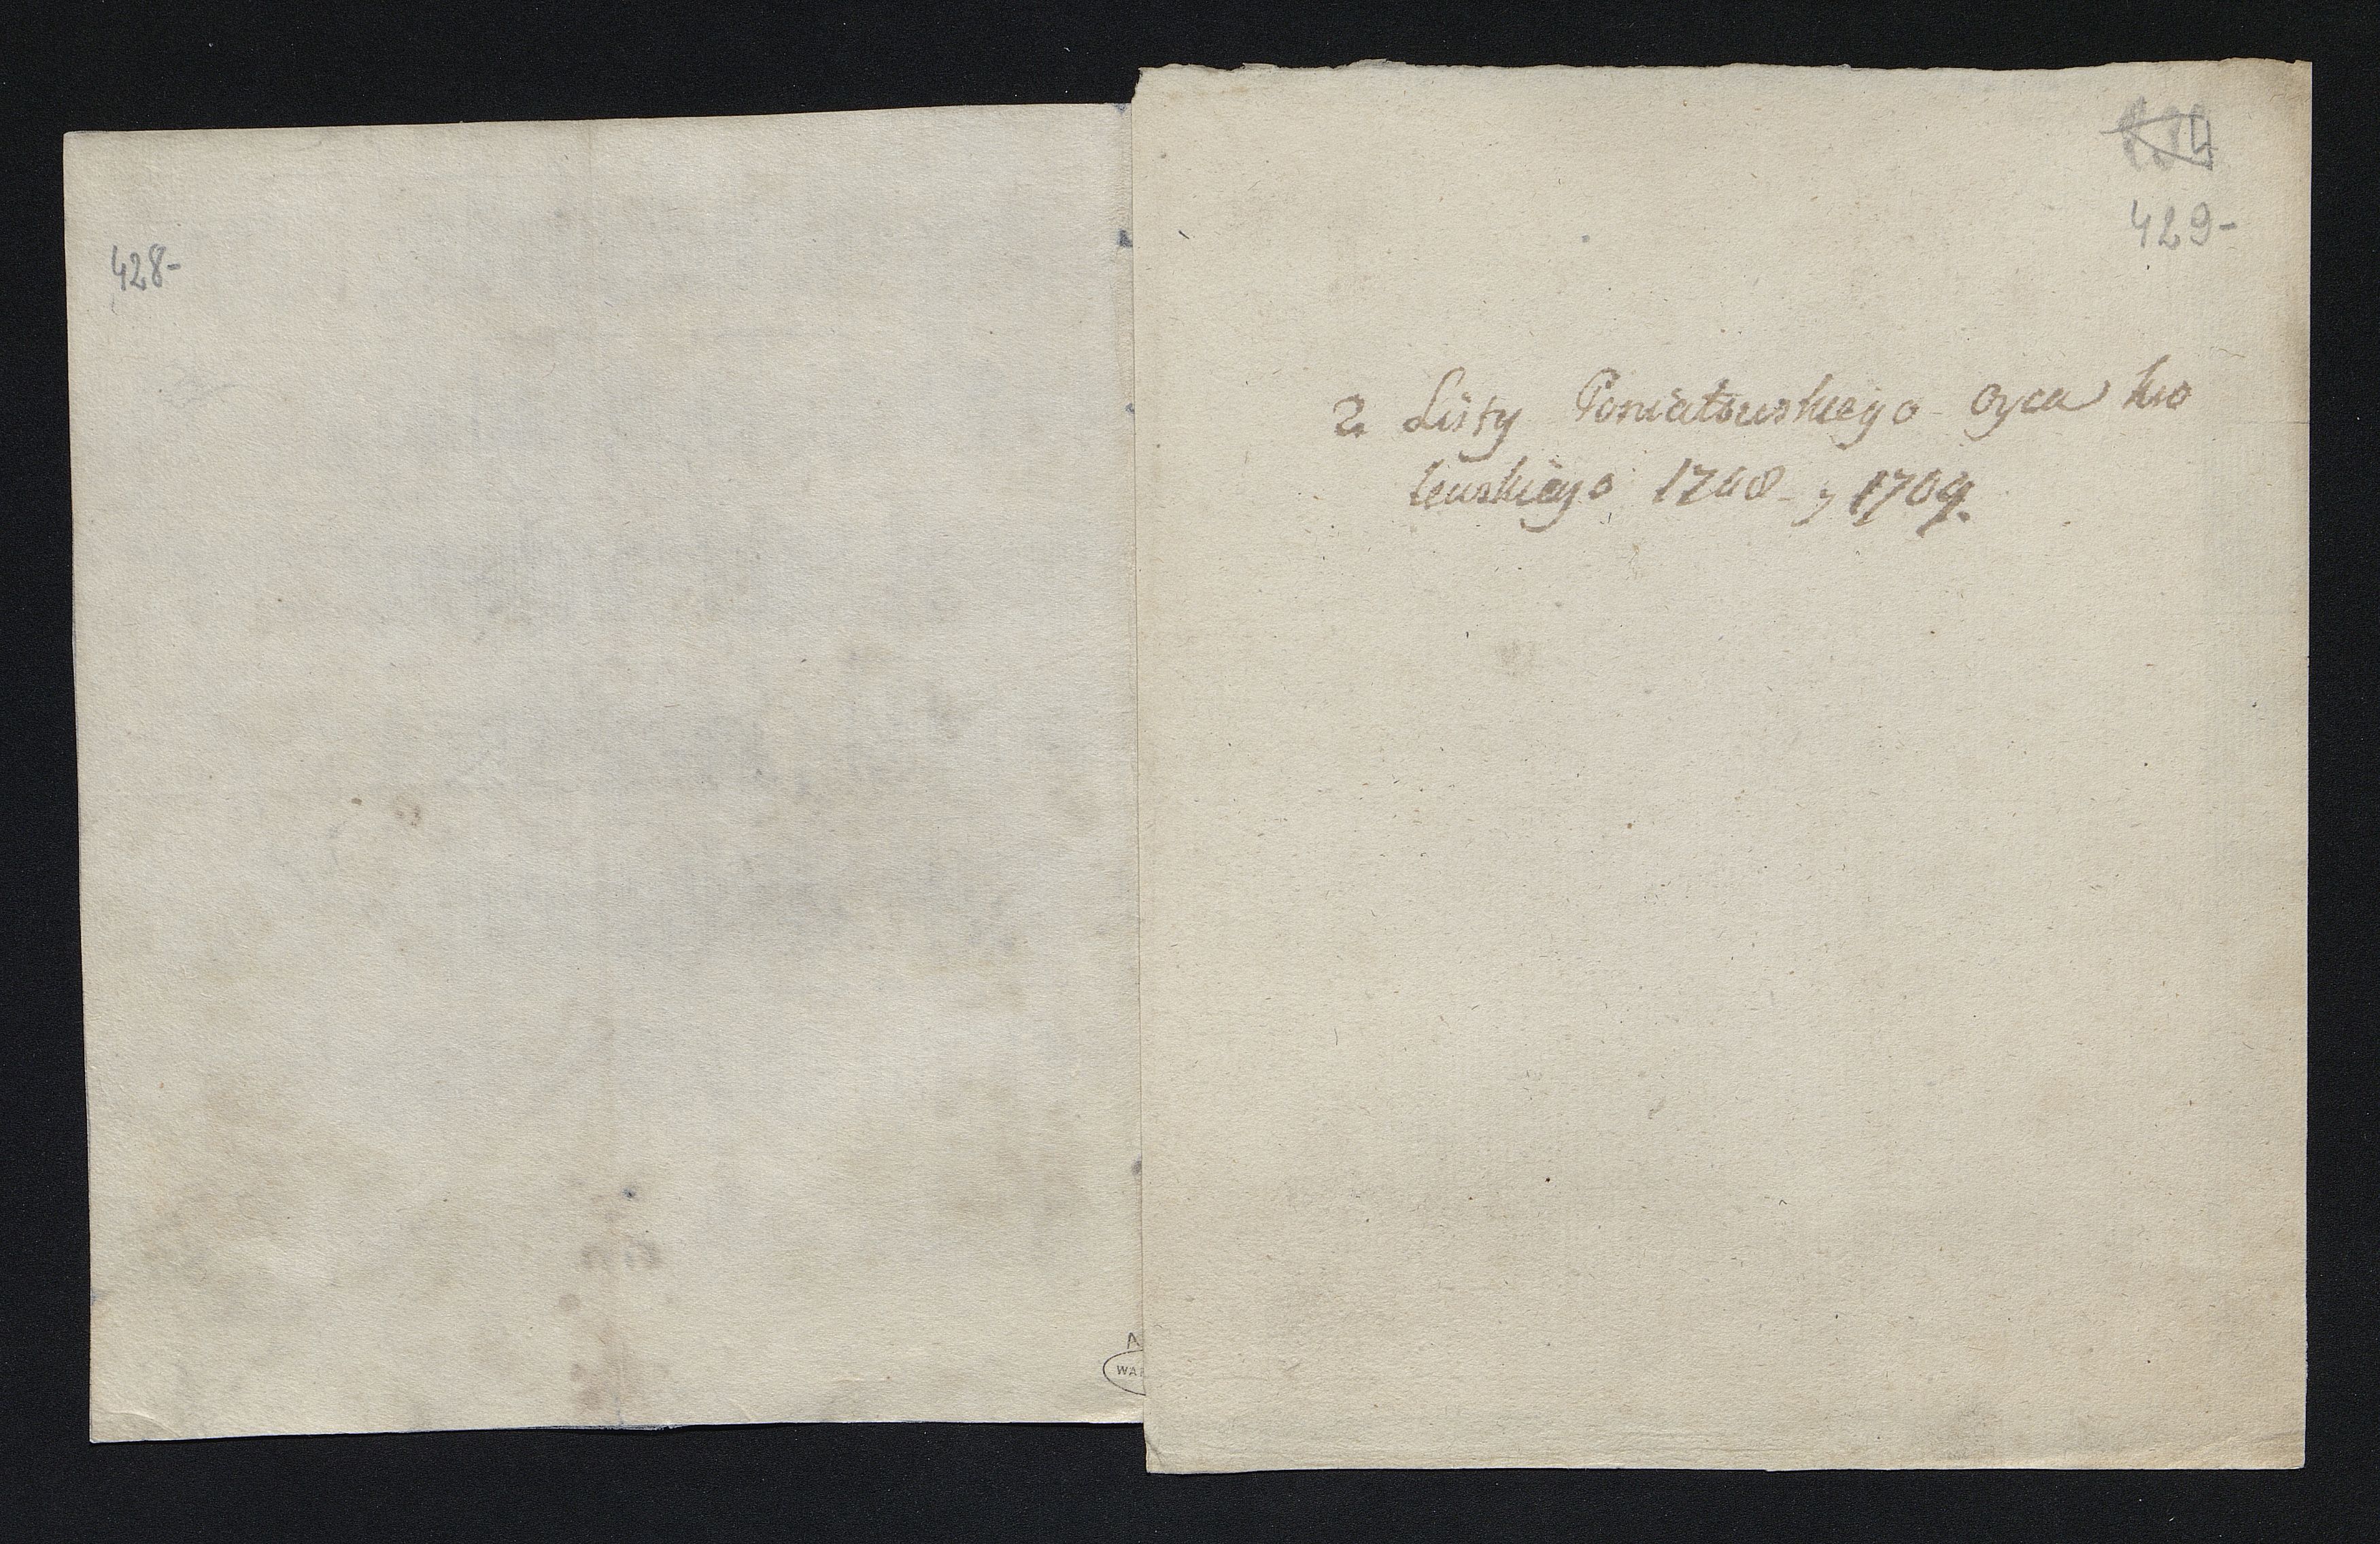 428-
429-
2 Listy Poniatowskiego oyca kro
lewskiego 1708 y 1709.
WA